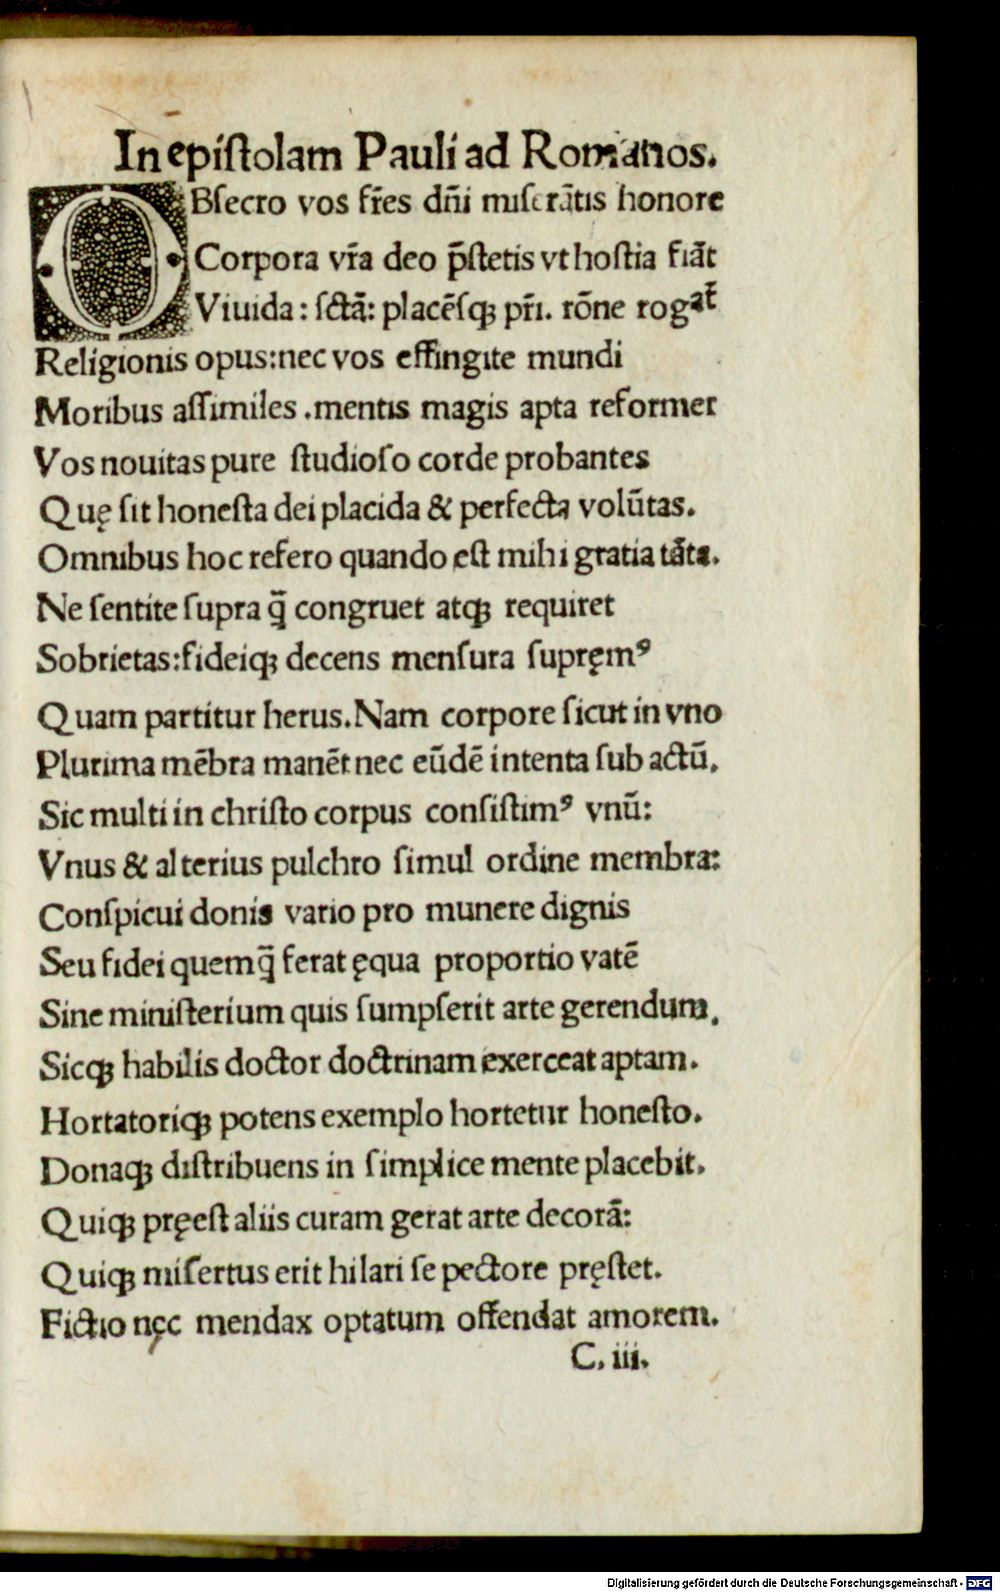 In epiſtolam Pauli ad Romanos.
OBſecro vos fr̄es dn̄i miſerātis honore
Corpora vr̄a deo p̄ſtetis vt hoſtia fiāt
Viuida: ſctā: placēſqꝫ pr̄i. rōne rogat̄
Religionis opus: nec vos effingite mundi
Moribus aſſimiles. mentis magis apta reformet
Vos nouitas pure ſtudioſo corde probantes
Quę ſit honeſta dei placida & perfecta volūtas.
Omnibus hoc refero quando eſt mihi gratia tāta.
Ne ſentite ſupra q̄ congruet atqꝫ requiret
Sobrietas: fideiqꝫ decens menſura ſupręmꝰ
Quam partitur herus. Nam corpore ſicut in vno
Plurima mēbra manēt nec eūdē intenta ſub actū,
Sic multi in chriſto corpus conſiſtimꝰ vnū:
Vnus & alterius pulchro ſimul ordine membra:
Conſpicui donis vario pro munere dignis
Seu fidei quemq̄ ferat ęqua proportio vatē
Sine miniſterium quis ſumpſerit arte gerendum,
Sicqꝫ habilis doctor doctrinam exerceat aptam.
Hortatoriqꝫ potens exemplo hortetur honeſto.
Donaqꝫ diſtribuens in ſimplice mente placebit.
Quiqꝫ pręeſt aliis curam gerat arte decorā:
Quiqꝫ miſertus erit hilari ſe pectore pręſtet.
Fictio nęc mendax optatum offendat amorem.
C. iii.
Digitalisierung gefördert durch die Deutsche Forschungsgemeinschaft - DFG